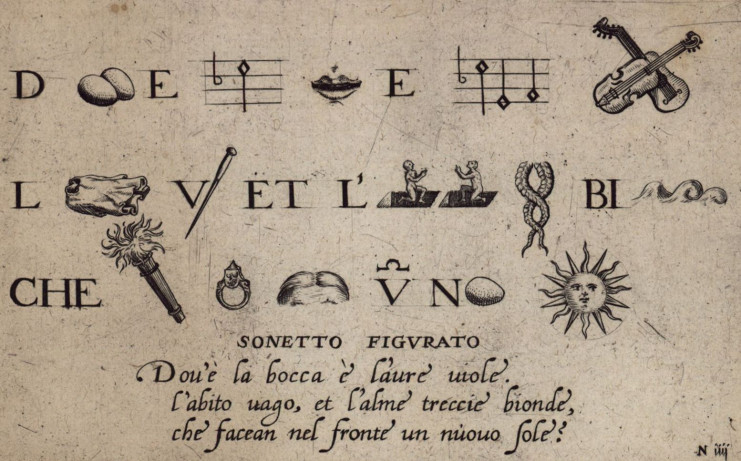 D E E
L V ET L' BI
CHE V N
SONETTO FIGVRATO
Dou'e la bocca è l'aure uiole.
l'abito uago, et l'alme treccie bionde,
che facean nel fronte un nùouo sole?
N iiij